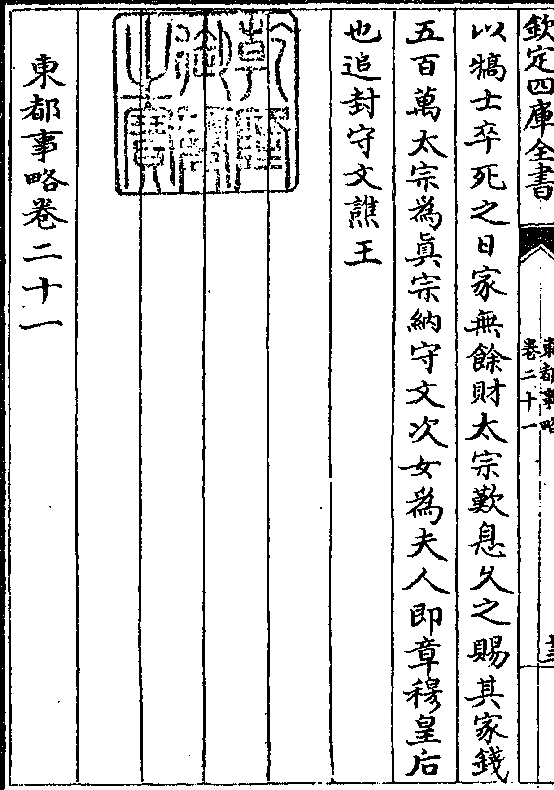 欽定四庫全書
東都事略
卷二十一
以犒士卒死之日家無餘財太宗歎息久之賜其家錢
五百萬太宗為真宗納守文次女為夫人即章穆皇后
也追封守文譙王
乾隆御覽之寶
東都事略卷二十一